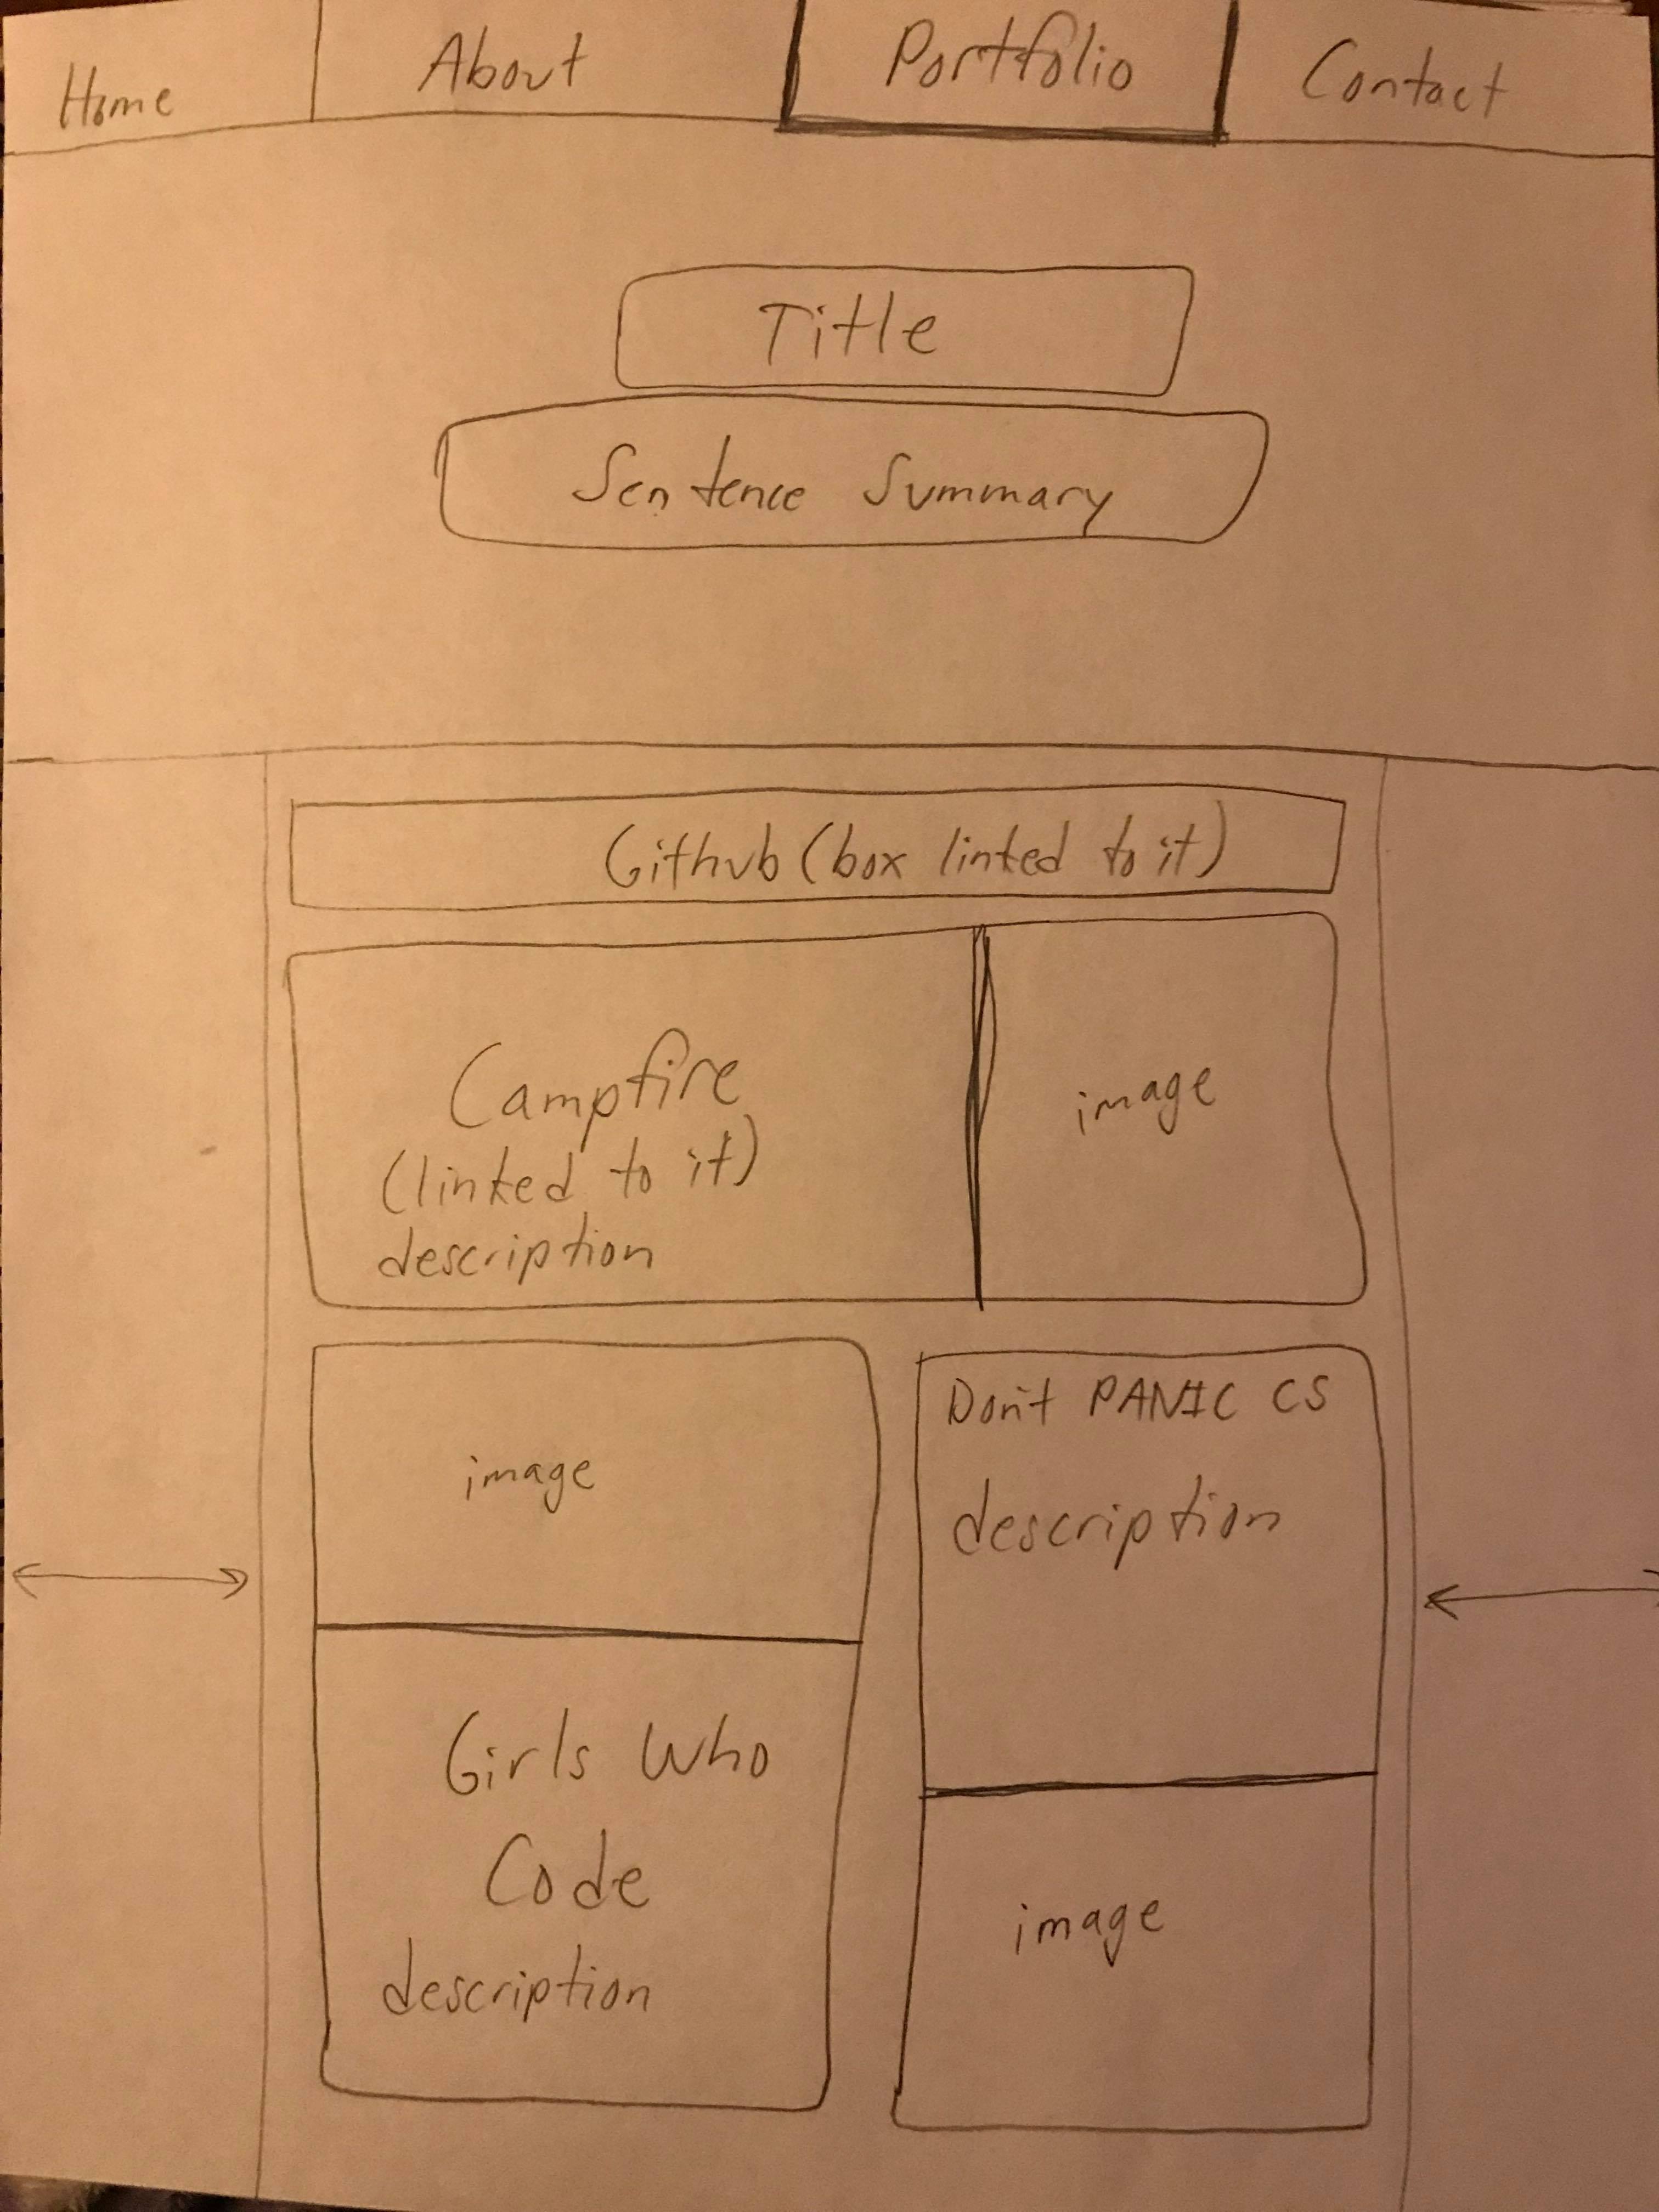 Home
About
Portfolio
Contact
Title
Sentence Summary
Github (box linked to it)
Campfire
(linked to it)
description
image
image
Girls Who
Code
description
Don't PANIC CS
description
image